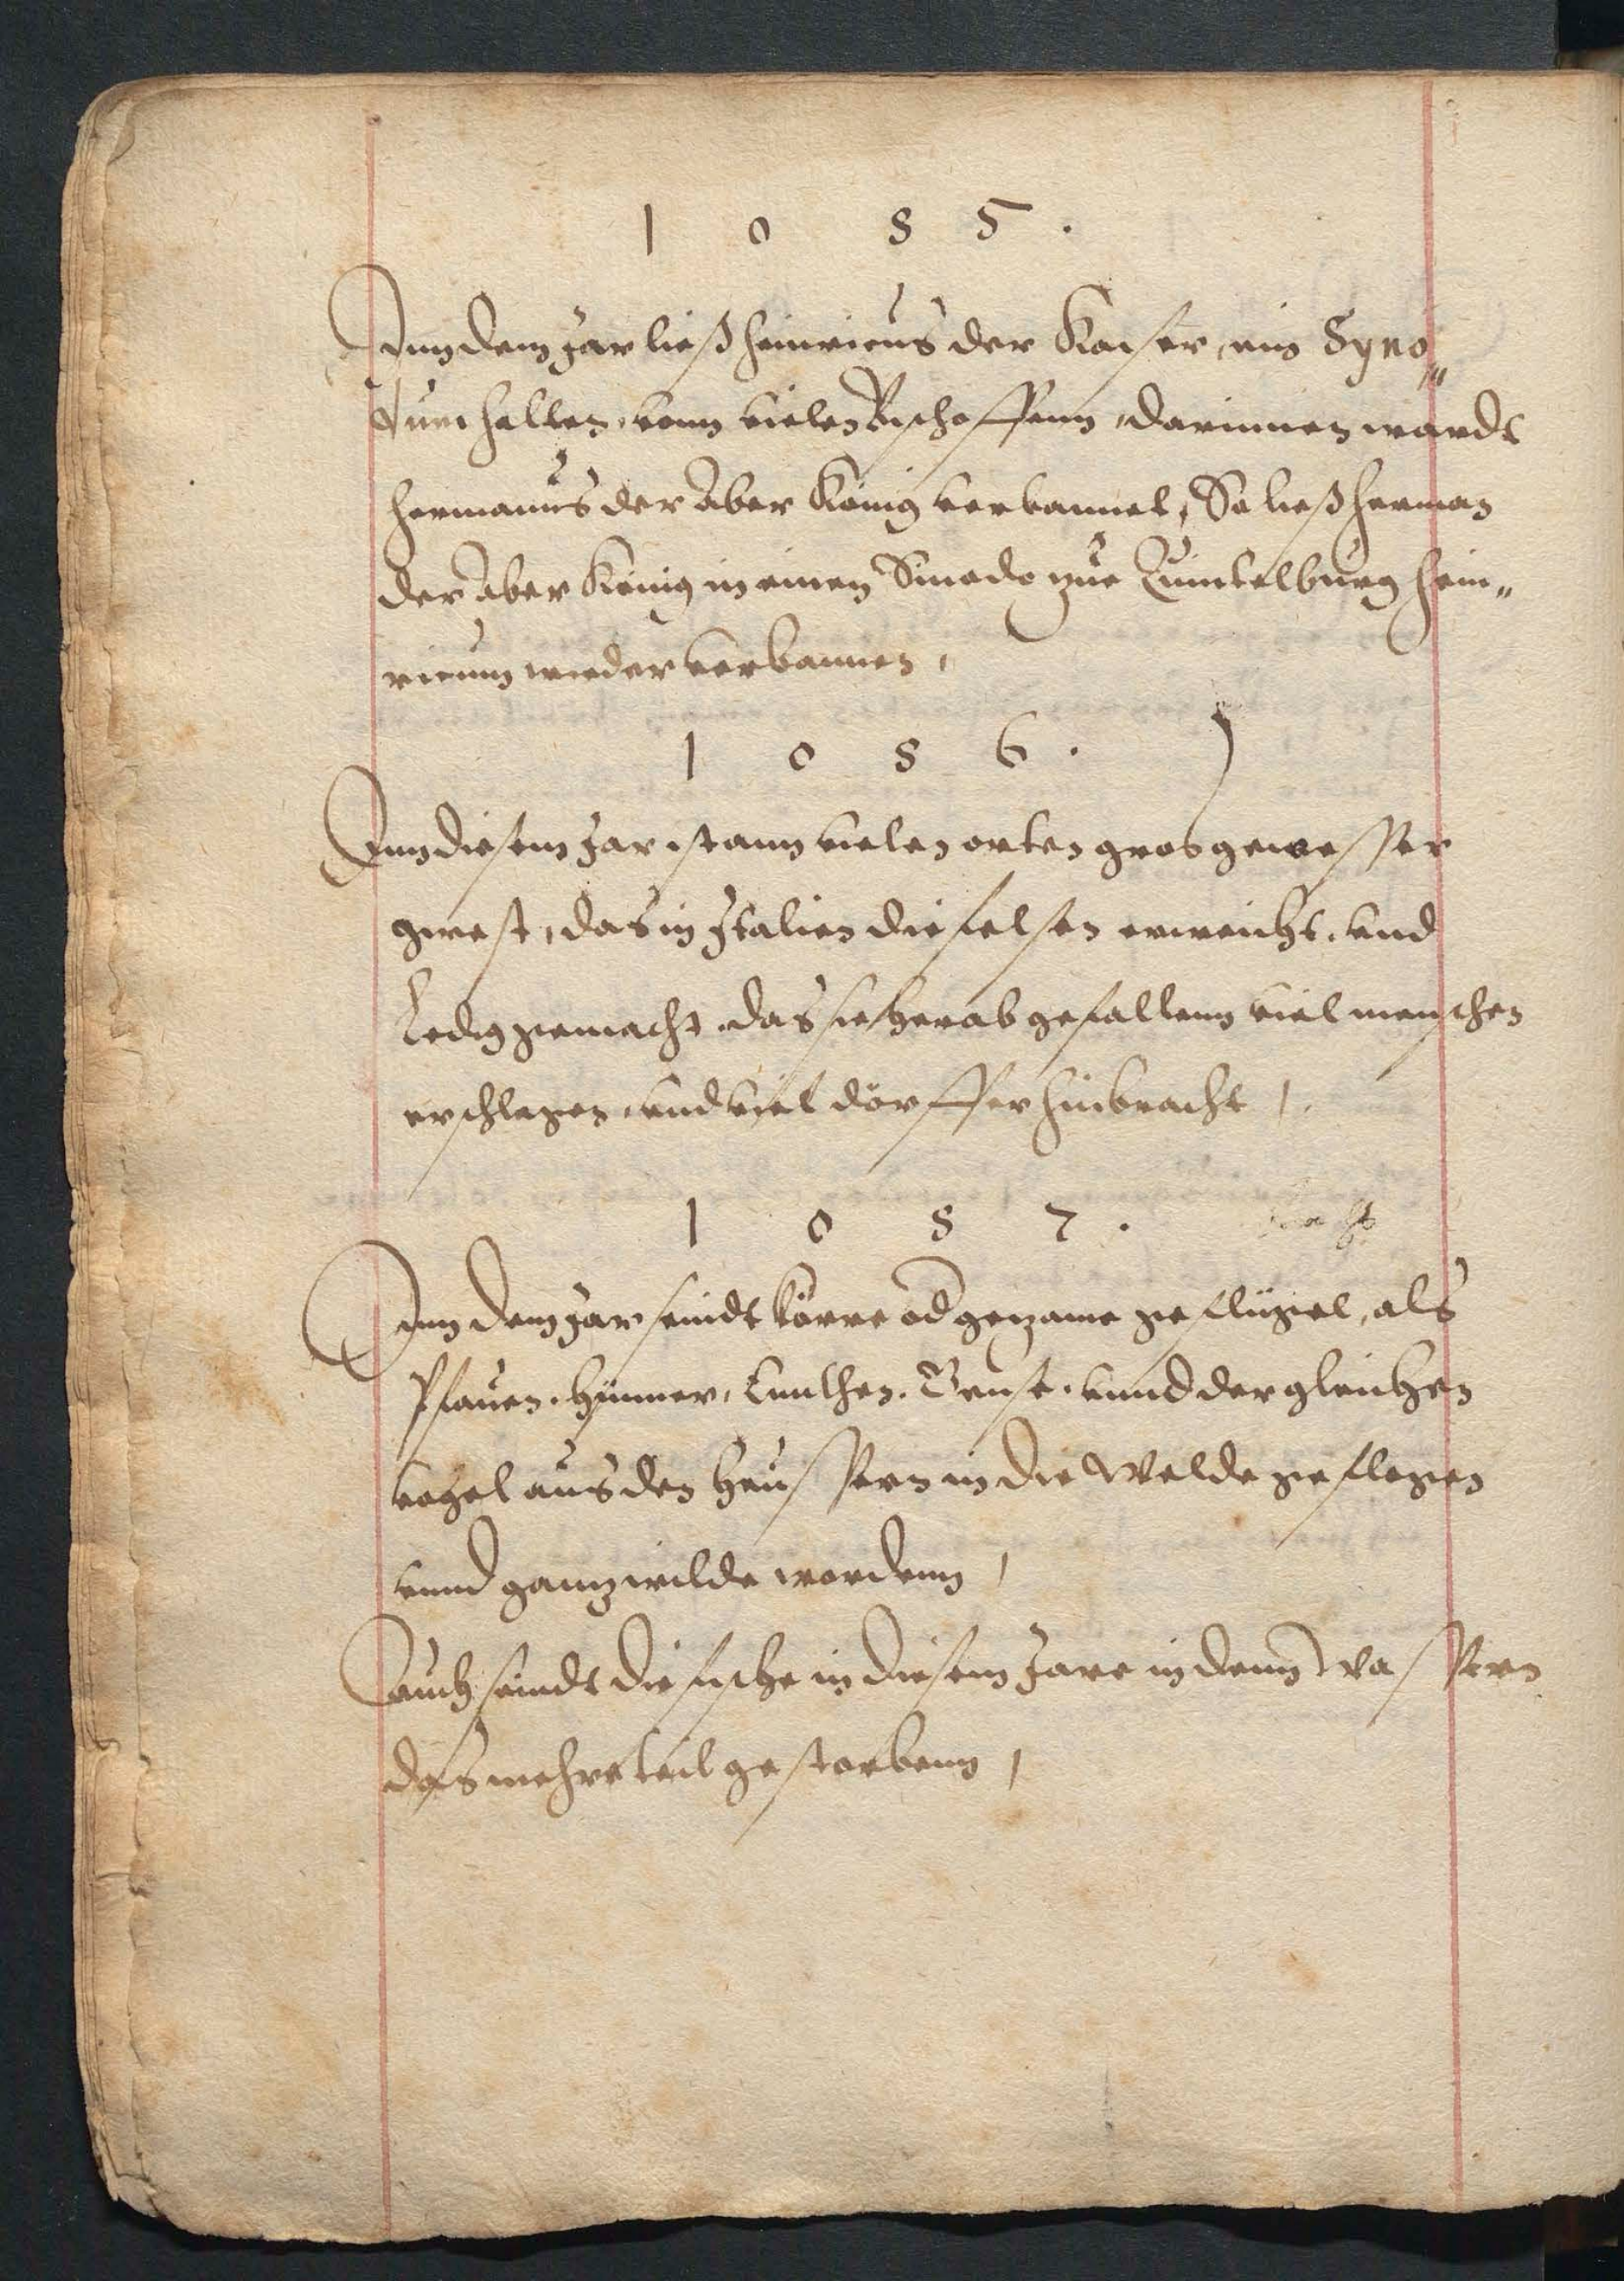 1 0 8 5 .
Inn dem Jar ließ Heinricus der Kaiser, ein Syno„
dum halten, vonn vielen Bischoffenn, darinnen wardt
Hermanus der Aber König verbannet, So ließ Herman
der Aber König in einen Sinodo zue Quintelburg Hein„
ricum wieder verbannen,
1 0 8 6 .
Inn diesem Jar ist ann vielen orten gros gewesser
gwest, das in Italien die felsen erweicht, und
Ledig gemacht, das sie herab gefallenn viel menschen
erschlagen, und viel dörffer hinbracht,
1 0 8 7 .
Inn dem Jar seindt körre od gezame geflügel, als
Pfauen, Hünner, Enthen, Gense, unnd dergleichen
vogel aus den Heussern in die Welde geflogen
unnd ganz wilde wordenn,
Auch seindt die fische in diesem Jare in denn Wassern
das mehre teil gestorbenn,